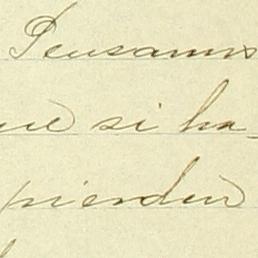 Pensamos
ue si ha-
pierden